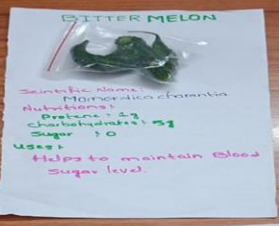 BITTER MELON
Scintific Name:
Momordica charentia
Nutritions:
Protene : 1g
Charbohydrates : 5g
Sugar : 0
Uses:
Helps to maintain Blood
Sugar level.